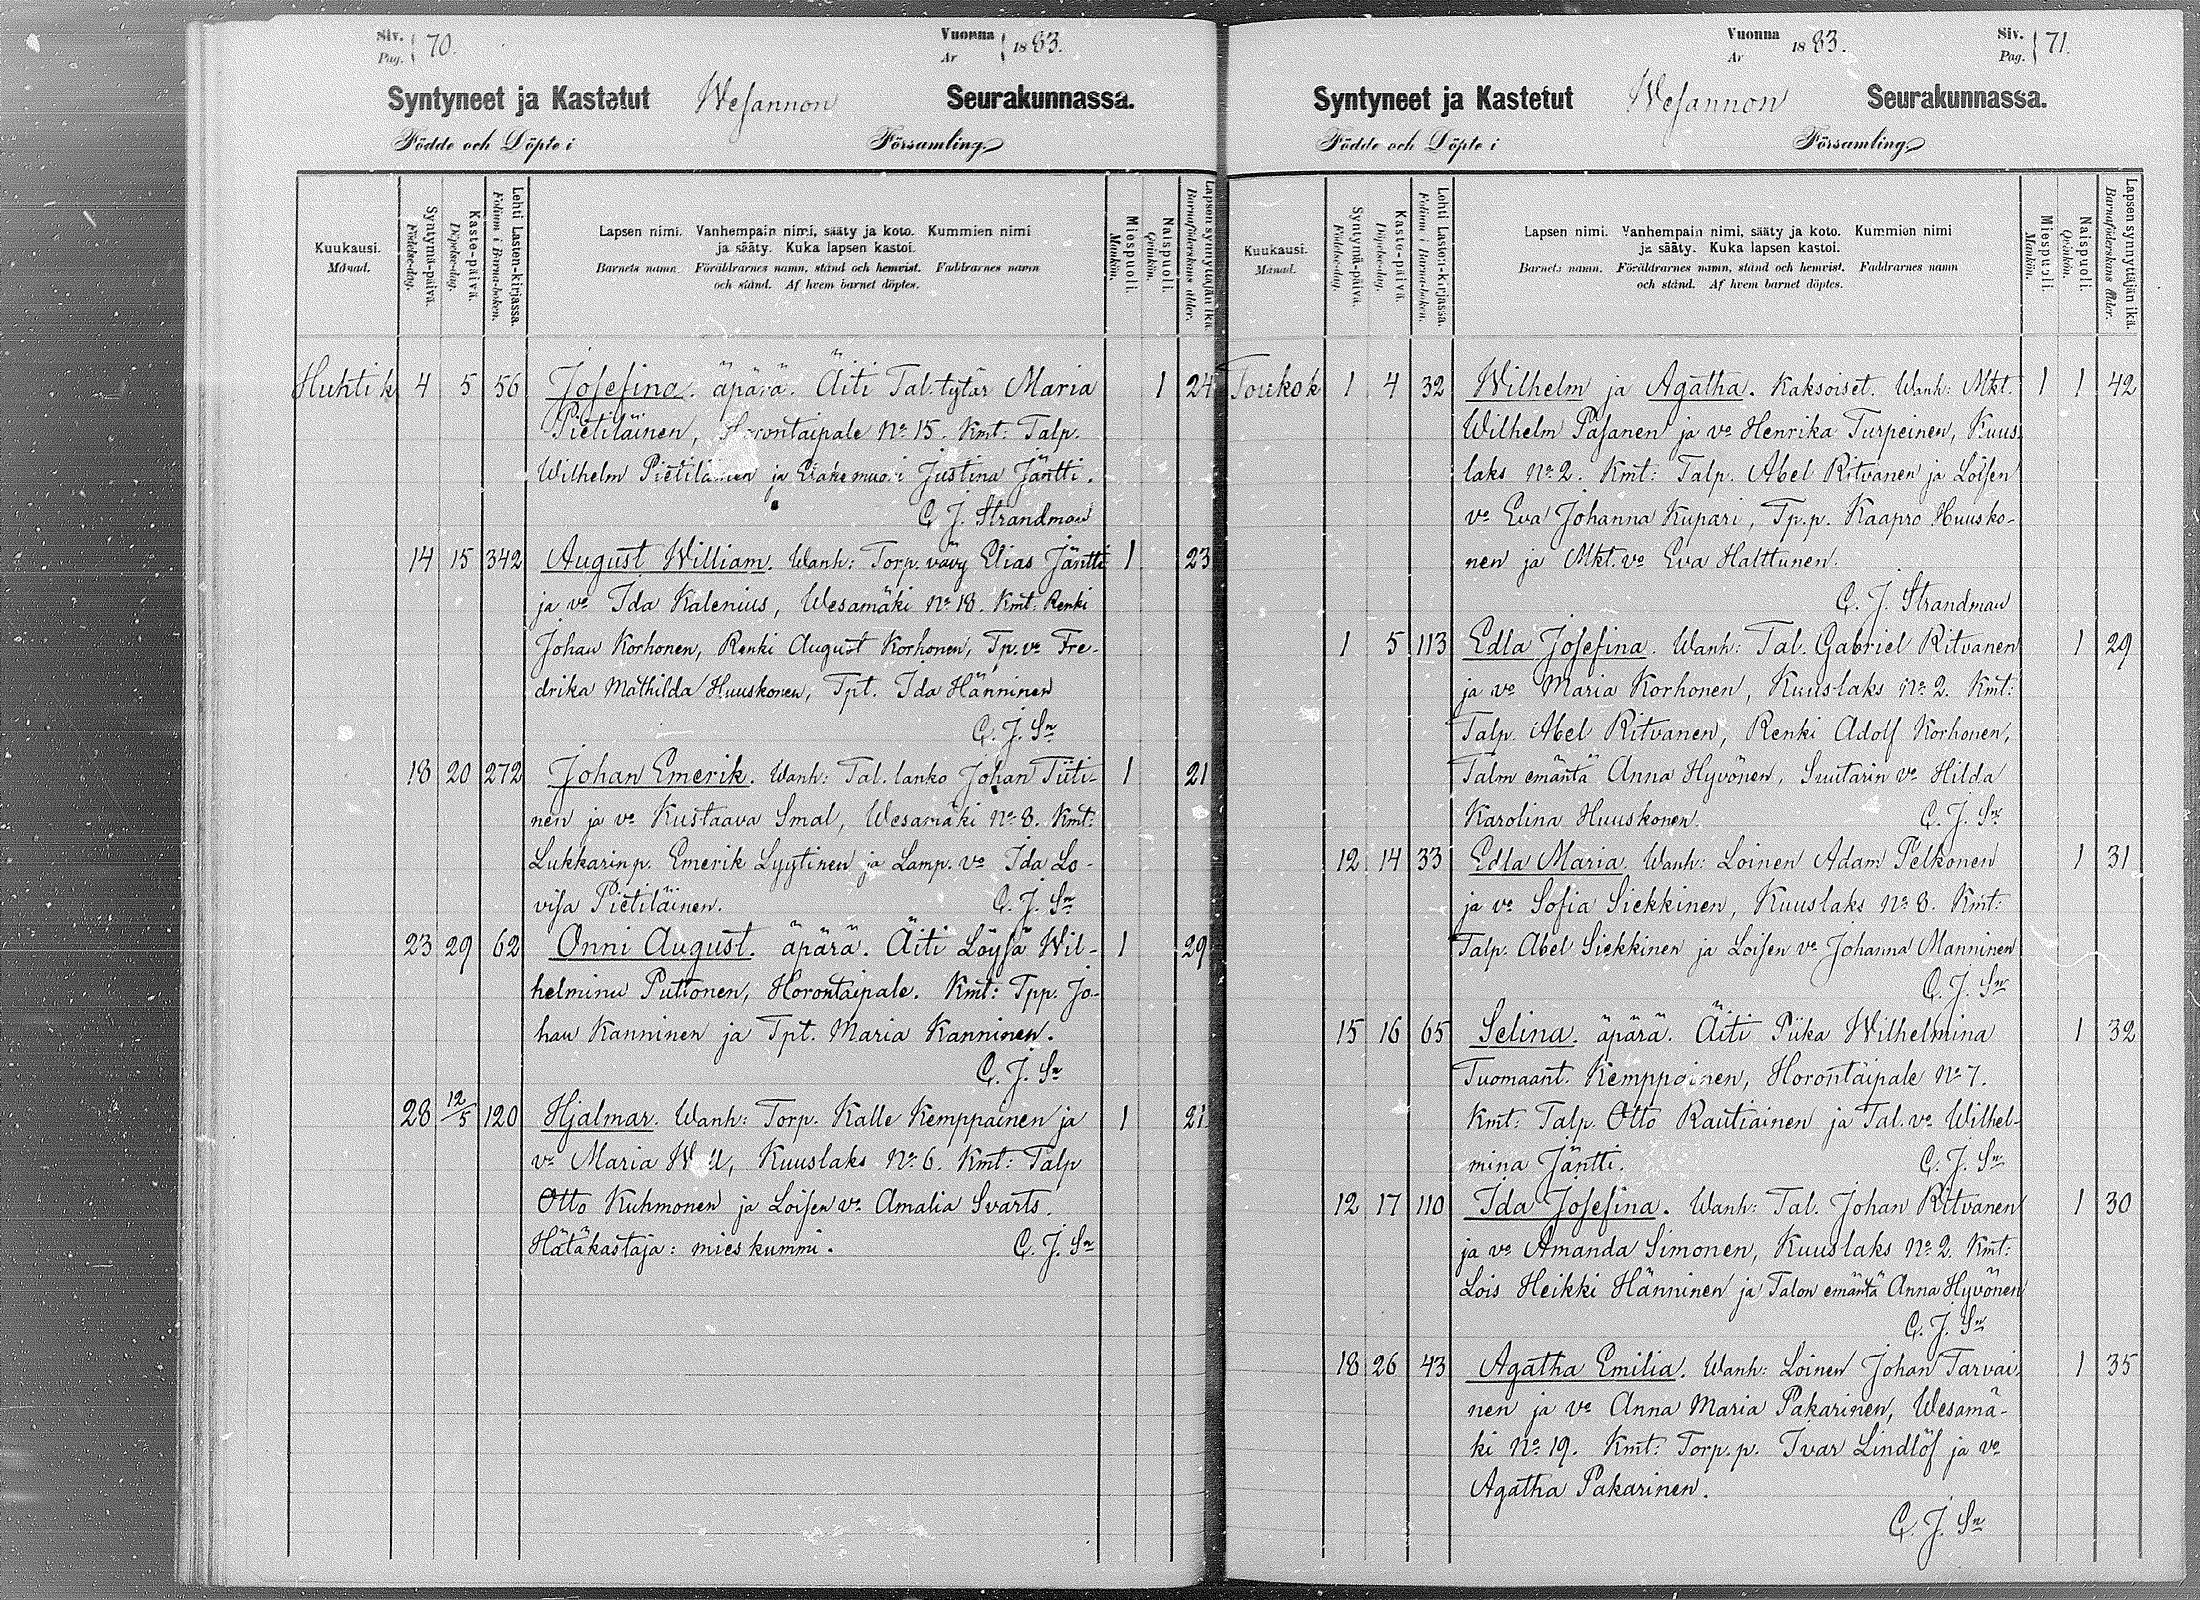 Siv. Pag. 70.
Vuonna År 1883.
Syntyneet ja Kastetut Wesannon Seurakunnassa.
Födde och Döpte i Församling.
Kuukausi. Månad.
Syntymä-päivä. Födelse-dag.
Kaste-päivä. Döpelse-dag.
Lehti Lasten-kirjassa. Folium i Barna-boken.
Lapsen nimi. Vanhempain nimi, sääty ja koto. Kummien nimi
ja sääty. Kuka lapsen kastoi.
Barnets namn. Föräldrarnes namn, stånd och hemvist. Faddrarnes namn
och stånd. Af hvem barnet döptes.
Miespuoli. Mankön.
Naispuoli. Qvinkön.
Lapsen synnyttäjän ikä. Barnaföderskans ålder.
Huhtik 4 5 56 Josefina. äpärä. Äiti Tal. tytär Maria 1 24
Pietiläinen, Horontaipale No 15. Kmt: Talp.
Wilhelm Pietiläinen ja Justina Jäntti.
C. J. Strandman
14 15 342 August William. Wanh: Torp. vävy Elias Jäntti 1 23
ja vo Ida Kalenius, Wesamäki No 18. Kmt. Renki
Johan Korhonen, Renki August Korhonen, Tp. vo Fre-
drika Mathilda Huuskonen, Tpt. Ida Hänninen
C. J. Sn
18 20 272 Johan Emerik. Wanh: Tal. lanko Johan Tiiti- 1 21
nen ja vo Kustaava Smal, Wesamäki No 8. Kmt:
Lukkarin p. Emerik Lyytinen ja Lamp. vo Ida Lo-
visa Pietiläinen. C. J. Sn
23 29 62 Onni August. äpärä. Äiti Löysä Wil- 1 29
helmina Puttonen, Horontaipale. Kmt: Tpp. Jo-
han Kanninen ja Tpt. Maria Kanninen.
C. J. Sn
28 12/5 120 Hjalmar. Wanh: Torp. Kalle Kemppainen ja 1 21
vo Maria Kuuslaks No 6. Kmt: Talp
Otto Kuhmonen ja Loisen vo Amalia Svarts.
Hätäkastaja: mieskummi. C. J. Sn
Vuonna År 1883.
Siv. Pag. 71.
Syntyneet ja Kastetut Wesannon Seurakunnassa.
Födde och Döpte i Församling.
Kuukausi. Månad.
Syntymä-päivä. Födelse-dag.
Kaste-päivä. Döpelse-dag.
Lehti Lasten-kirjassa. Folium i Barna-boken.
Lapsen nimi. Vanhempain nimi, sääty ja koto. Kummien nimi
ja sääty. Kuka lapsen kastoi.
Barnets namn. Föräldrarnes namn, stånd och hemvist. Faddrarnes namn
och stånd. Af hvem barnet döptes.
Miespuoli. Mankön.
Naispuoli. Qvinkön.
Lapsen synnyttäjän ikä. Barnaföderskans ålder.
Toukok 1 4 32 Wilhelm ja Agatha. Kaksoiset. Wanh: Mkt. 1 1 42
Wilhelm Pasanen ja vo Henrika Turpeinen, Kuus-
laks No 2. Kmt: Talp. Abel Ritvanen ja Loisen
vo Eva Johanna Kupari, Tp. p. Kaapro Huusko-
nen ja Mkt. vo Eva Halttunen.
C. J. Strandman
1 5 113 Edla Josefina. Wanh: Tal. Gabriel Ritvanen 1 29
ja vo Maria Korhonen, Kuuslaks No 2. Kmt:
Talp. Abel Ritvanen, Renki Adolf Korhonen,
Talm emäntä Anna Hyvönen, Suutarin vo Hilda
Karolina Huuskonen. C. J. Sn
12 14 33 Edla Maria. Wanh: Loinen Adam Pelkonen 1 31
ja vo Sofia Siekkinen, Kuuslaks No 8. Kmt:
Talp. Abel Siekkinen ja Loisen vo Johanna Manninen
C. J. Sn
15 16 65 Selina. äpärä. Äiti Piika Wilhelmina 1 32
Tuomaant. Kemppainen, Horontaipale No 7.
Kmt: Talp. Otto Rautiainen ja Tal. vo Wilhel-
mina Jäntti. C. J. Sn
12 17 110 Ida Josefina. Wanh: Tal. Johan Ritvanen 1 30
ja vo Amanda Simonen, Kuuslaks No 2. Kmt:
Lois Heikki Hänninen ja Talon emäntä Anna Hyvönen
C. J. Sn
18 26 43 Agatha Emilia. Wanh: Loinen Johan Tarvai- 1 35
nen ja vo Anna Maria Pakarinen, Wesamä-
ki No 19. Kmt: Torp. p. Ivar Lindlöf ja vo
Agatha Pakarinen.
C. J. Sn